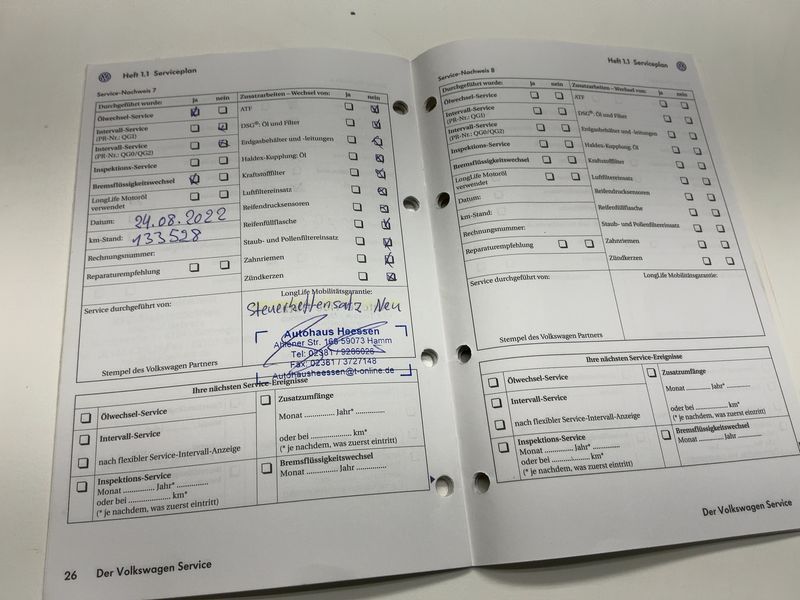 Heft 1.1 Serviceplan
Service-Nachweis 7
Durchgeführt wurde: ja nein
Ölwechsel-Service
Intervall-Service
(PR-Nr.: QG1)
Intervall-Service
(PR-Nr.: QG0/QG2)
Inspektions-Service
Bremsflüssigkeitswechsel
LongLife Motoröl
verwendet
Datum: 24.08.2022
km-Stand: 133528
Rechnungsnummer:
Reparaturempfehlung
Zusatzarbeiten – Wechsel von: ja nein
ATF
DSG®: Öl und Filter
Erdgasbehälter und -leitungen
Haldex-Kupplung: Öl
Kraftstofffilter
Luftfiltereinsatz
Reifendrucksensoren
Reifenfüllflasche
Staub- und Pollenfiltereinsatz
Zahnriemen
Zündkerzen
Service durchgeführt von:
LongLife Mobilitätsgarantie:
Steuerkettensatz Neu
Autohaus Heessen
Ahlener Str. 166 59073 Hamm
Tel: 02381 / 9285026
Fax: 02381 / 3727148
Autohausheessen@t-online.de
Stempel des Volkswagen Partners
Ihre nächsten Service-Ereignisse
Ölwechsel-Service
Intervall-Service
nach flexibler Service-Intervall-Anzeige
Inspektions-Service
Monat .............. Jahr* ..............
oder bei .................... km*
(* je nachdem, was zuerst eintritt)
Zusatzumfänge
Monat .............. Jahr* ..............
oder bei .................... km*
(* je nachdem, was zuerst eintritt)
Bremsflüssigkeitswechsel
Monat .............. Jahr ..............
26 Der Volkswagen Service
Heft 1.1 Serviceplan
Service-Nachweis 8
Durchgeführt wurde: ja nein
Ölwechsel-Service
Intervall-Service
(PR-Nr.: QG1)
Intervall-Service
(PR-Nr.: QG0/QG2)
Inspektions-Service
Bremsflüssigkeitswechsel
LongLife Motoröl
verwendet
Datum:
km-Stand:
Rechnungsnummer:
Reparaturempfehlung
Zusatzarbeiten – Wechsel von: ja nein
ATF
DSG®: Öl und Filter
Erdgasbehälter und -leitungen
Haldex-Kupplung: Öl
Kraftstofffilter
Luftfiltereinsatz
Reifendrucksensoren
Reifenfüllflasche
Staub- und Pollenfiltereinsatz
Zahnriemen
Zündkerzen
Service durchgeführt von:
LongLife Mobilitätsgarantie:
Stempel des Volkswagen Partners
Ihre nächsten Service-Ereignisse
Ölwechsel-Service
Intervall-Service
nach flexibler Service-Intervall-Anzeige
Inspektions-Service
Monat .............. Jahr* ..............
oder bei .................... km*
(* je nachdem, was zuerst eintritt)
Zusatzumfänge
Monat .............. Jahr* ..............
oder bei .................... km*
(* je nachdem, was zuerst eintritt)
Bremsflüssigkeitswechsel
Monat .............. Jahr ..............
Der Volkswagen Service